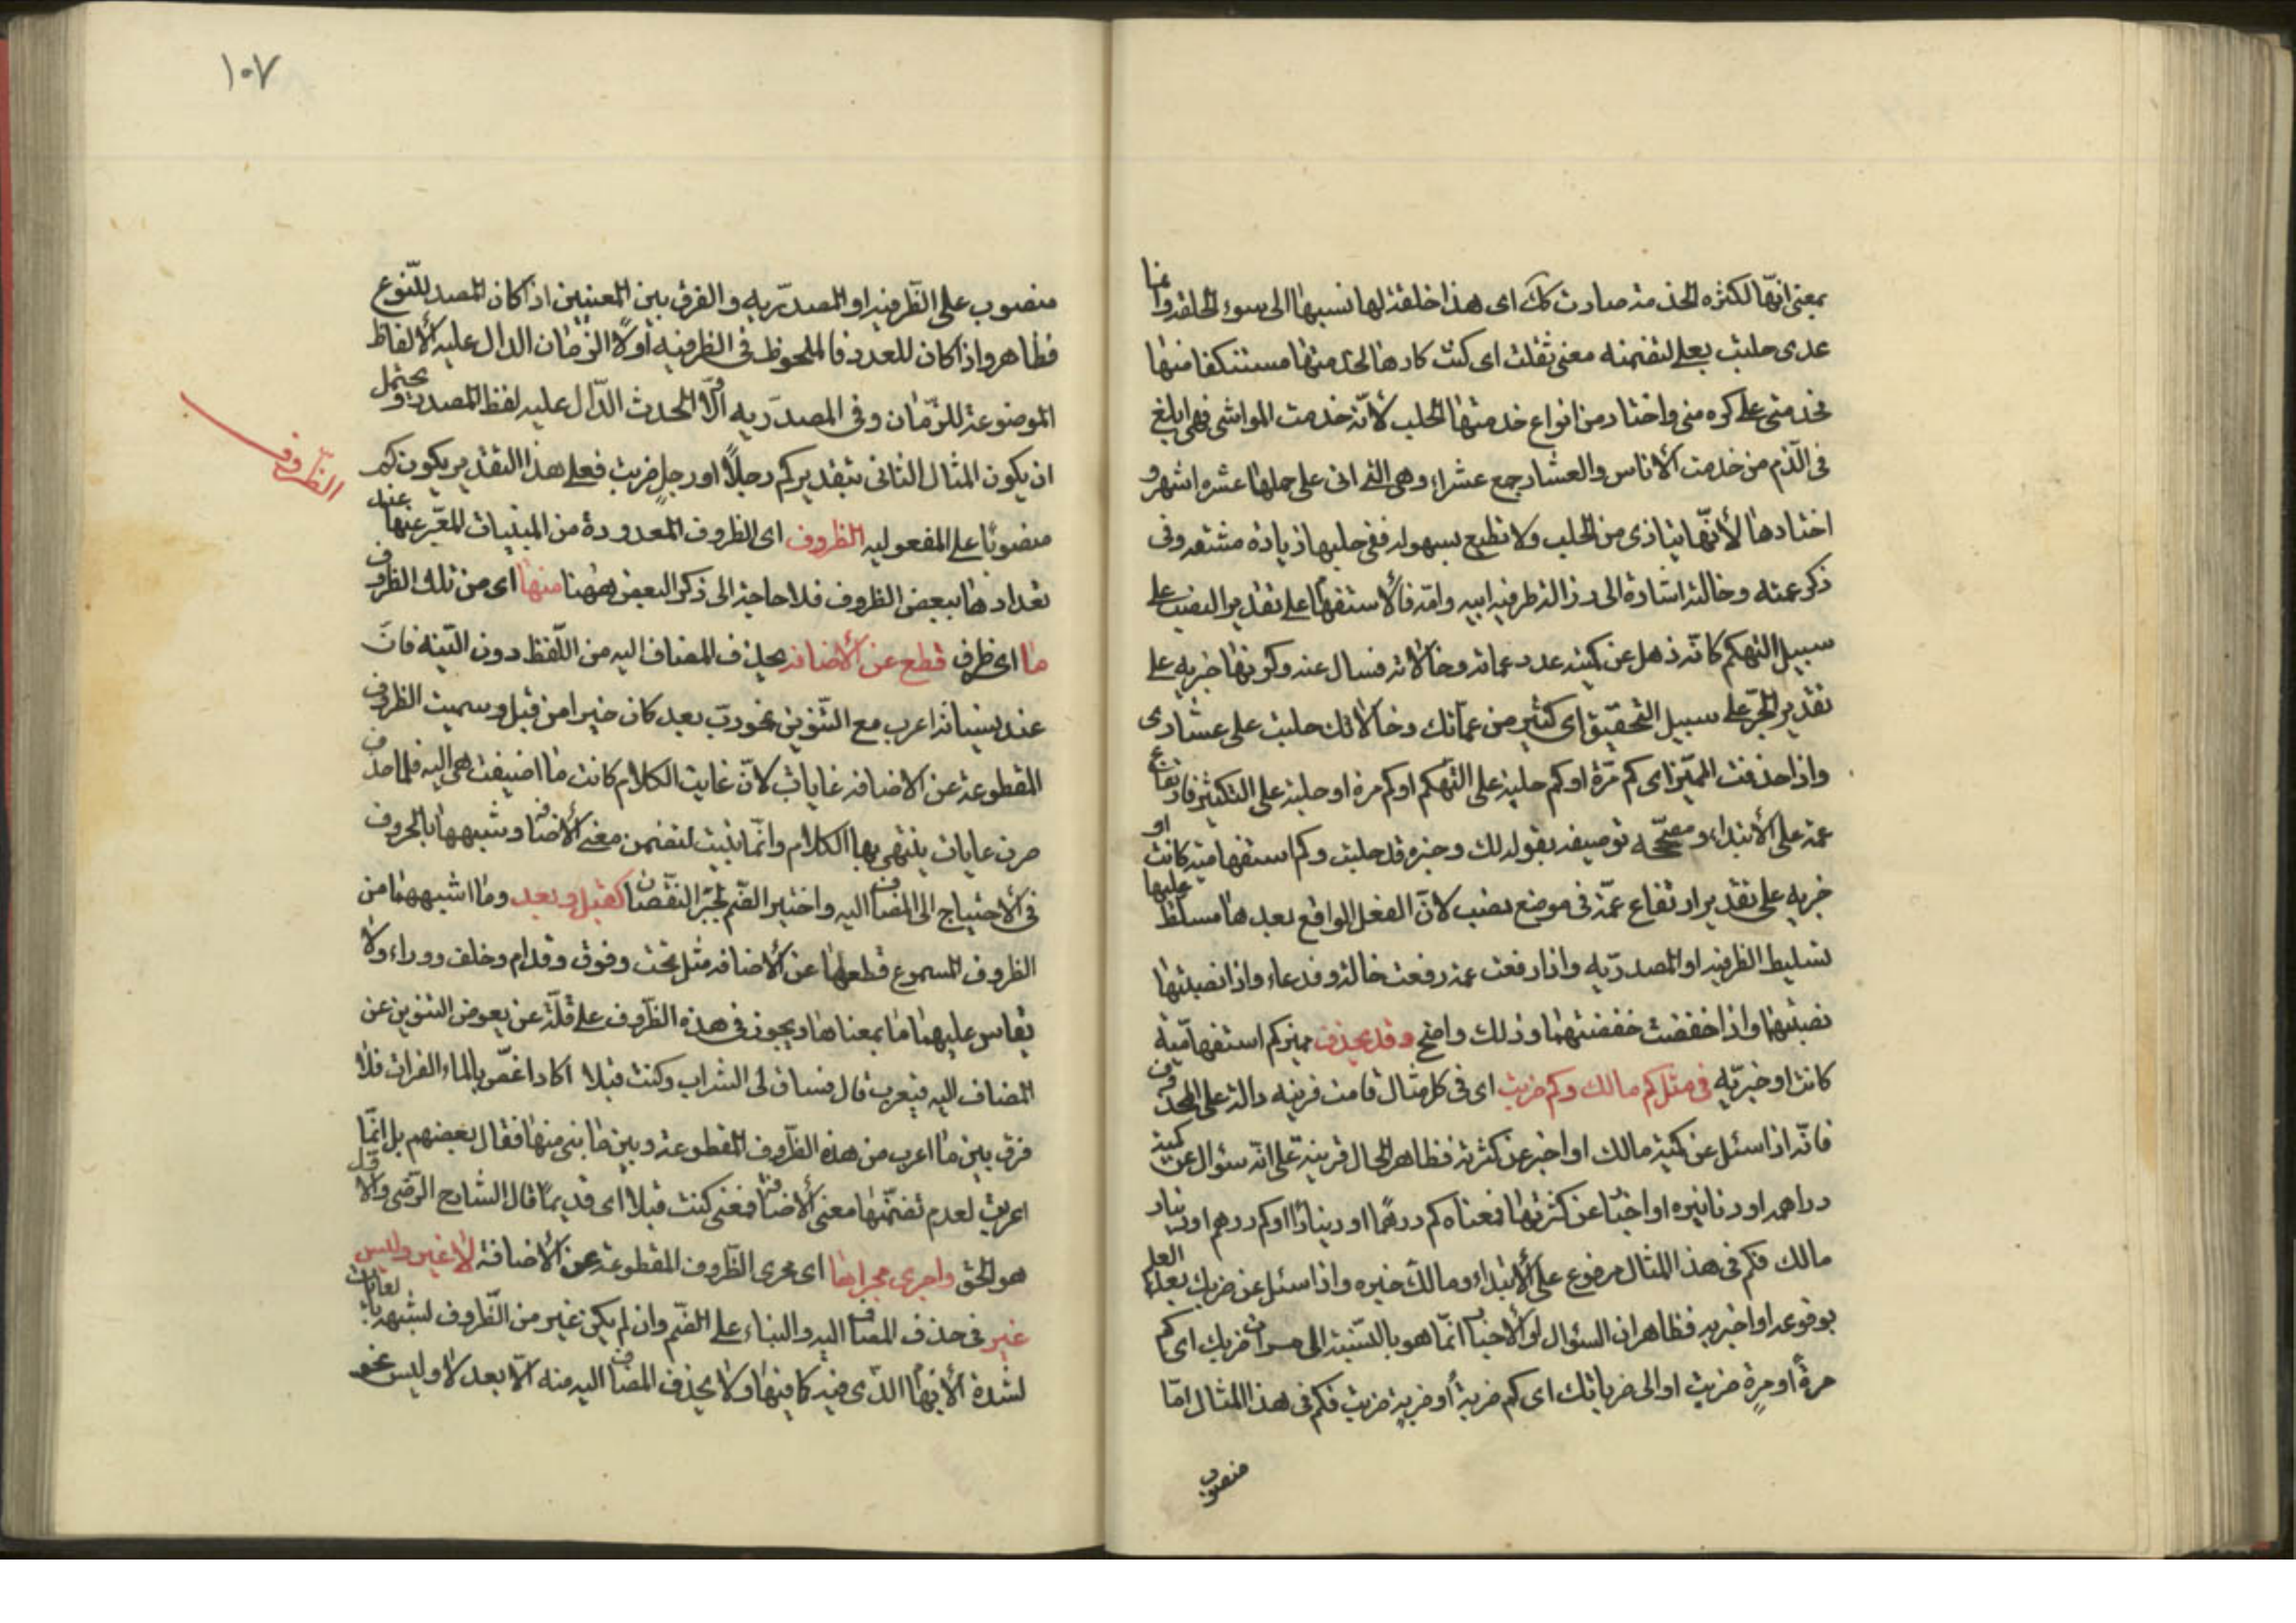 بمعنى انّها لكثرة الخدمة صارت كذلك اى هذا خلقة لها نسبها الى سوء الخلقة وانما
عدى حلبت بعلى لتضمنه معنى ثقلت اى كنت كارها لخدمتها مستنكفا منها
فخدمتنى على كره منى واختار من انواع خدمتها الحلب لانّه خدمت المواشى فهى ابلغ
فى الذم من خدمت الاناس والعشار جمع عشراء وهى التى اتى على حملها عشرة اشهر و
اختارها لانّها تتأذى من الحلب ولا تطيع بسهولة ففى حلبها زيادة مشقة وفى
ذكر عمته وخالته اشارة الى رذالة طرفيه ابيه وامّه فالاستفهام على تقدير النصب على
سبيل التهكم كانّه ذهل عن كمية عدد عماته وخالاته فسال عنه وكونها خبرية على
تقدير الجرّ على سبيل التحقيق اى كثير من عمّاتك وخالاتك حلبت على عشارى
واذا حذفت المميّز اى كم مرّة او كم حلبة على التهكم او كم مرة او حلبة على التكثير فارتفاع
عمة على الابتداء ومصحّحه توصيفه بقوله لك وخبره قد حلبت وكم استفهامية كانت او
خبرية على تقدير ارتفاع عمّة فى موضع نصب لانّ الفعل الواقع بعدها مسلط عليها
تسليط الظرفية او المصدريّة واذا رفعت عمة رفعت خالة وفدعاء واذا نصبتها
نصبتهما واذا خفضت خفضتهما وذلك واضح وقد يحذف مميز كم استفهاميّة
كانت او خبريّة فى مثل كم مالك وكم ضربت اى فى كل مثال قامت قرينة دالة على المحذوف
فانّه اذا سئل عن كمية مالك او اخبر عن كثرته فظاهر الحال قرينة على انّه سئوال عن كمية
دراهمه او دنانيره او اخبار عن كثرتها فمعناه كم درهمًا او دينارًا او كم درهم او دينار
مالك فكم فى هذا المثال مرفوع على الابتداء ومالك خبره واذا سئل عن ضربك بعد العلم
بوقوعه او اخبر به فظاهر ان السئوال او الاخبار انّما هو بالنّسبة الى مرات ضربك اى كم
مرةً او مرةٍ ضربت او الى ضرباتك اى كم ضربةً او ضربةٍ ضربت فكم فى هذا المثال امّا
منصوب
١٠٧
منصوب على الظّرفية او المصدريّة والفرق بين المعنيين اذا كان المصدر للنّوع
فظاهر واذا كان للعدد فالملحوظ فى الظرفية اولًا الزمان الدال عليه الالفاظ
الموضوعة للزّمان وفى المصدريّة اوّلًا الحدث الدّال عليه لفظ المصدر ويحتمل
ان يكون المثال الثانى بتقدير كم رجلًا او رجلٍ ضربت فعلى هذا التقدير يكون كم
الظّروف
منصوبًا على المفعولية الظروف اى الظروف المعدودة من المبنيات المعبّر عنها عند
تعدادها ببعض الظروف فلا حاجة الى ذكر البعض ههنا منها اى من تلك الظروف
ما اى ظرف قطع عن الاضافة بحذف المضاف اليه من اللّفظ دون النيّة فانّ
عند نسيانه اعرب مع التنوين نحو ربّ بعد كان خيرا من قبل وسميت الظروف
المقطوعة عن الاضافة غايات لانّ غايت الكلام كانت ما اضيفت هى اليه فلما حذف
صرن غايات ينتهى بها الكلام وانّما بنيت لتضمن معنى الاضافة وشبهها بالحروف
فى الاحتياج الى المضاف اليه واختير الضّم لجبر النقصان كقبل وبعد وما اشبههما من
الظروف المسموع قطعها عن الاضافة مثل تحت وفوق وقدام وخلف ووراء ولا
يقاس عليهما ما بمعناها ويجوز فى هذه الظّروف على قلّة عن يعوض التنوين عن
المضاف اليه فيعرب قال فساغ لى الشراب وكنت قبلا اكاد اغصّ بالماء الفرات فلا
فرق بين ما اعرب من هذه الظّروف المقطوعة وبين ما بنى منها فقال بعضهم بل انّما
اعربت لعدم تضمّنها معنى الاضافة فمعنى كنت قبلا اى قديما قال الشارح الرّضى والاول
هو الحق واجرى مجراها اى مجرى الظّروف المقطوعة عن الاضافة لا غير وليس
غير فى حذف المضاف اليه والبناء على الضّم وان لم يكن غير من الظّروف لشبهه بالغايات
لشدة الابهام الذّى فيه كما فيها ولا يحذف المضاف اليه منه الّا بعد لا وليس نحو